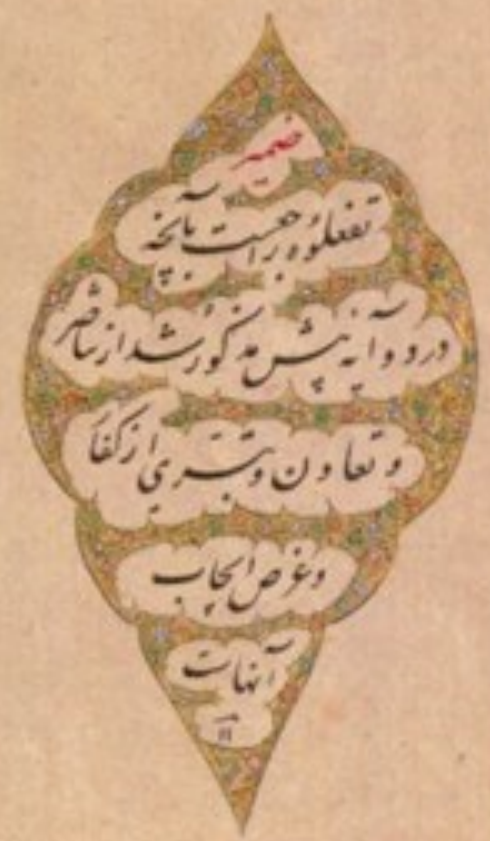 ضمیر
تفعلوه راجعست بآنچه
در دو آیه پیش مذکور شد از تناصر
و تعاون و تبری از کفار
و غرض ایجاب
آنهاست
۱۲